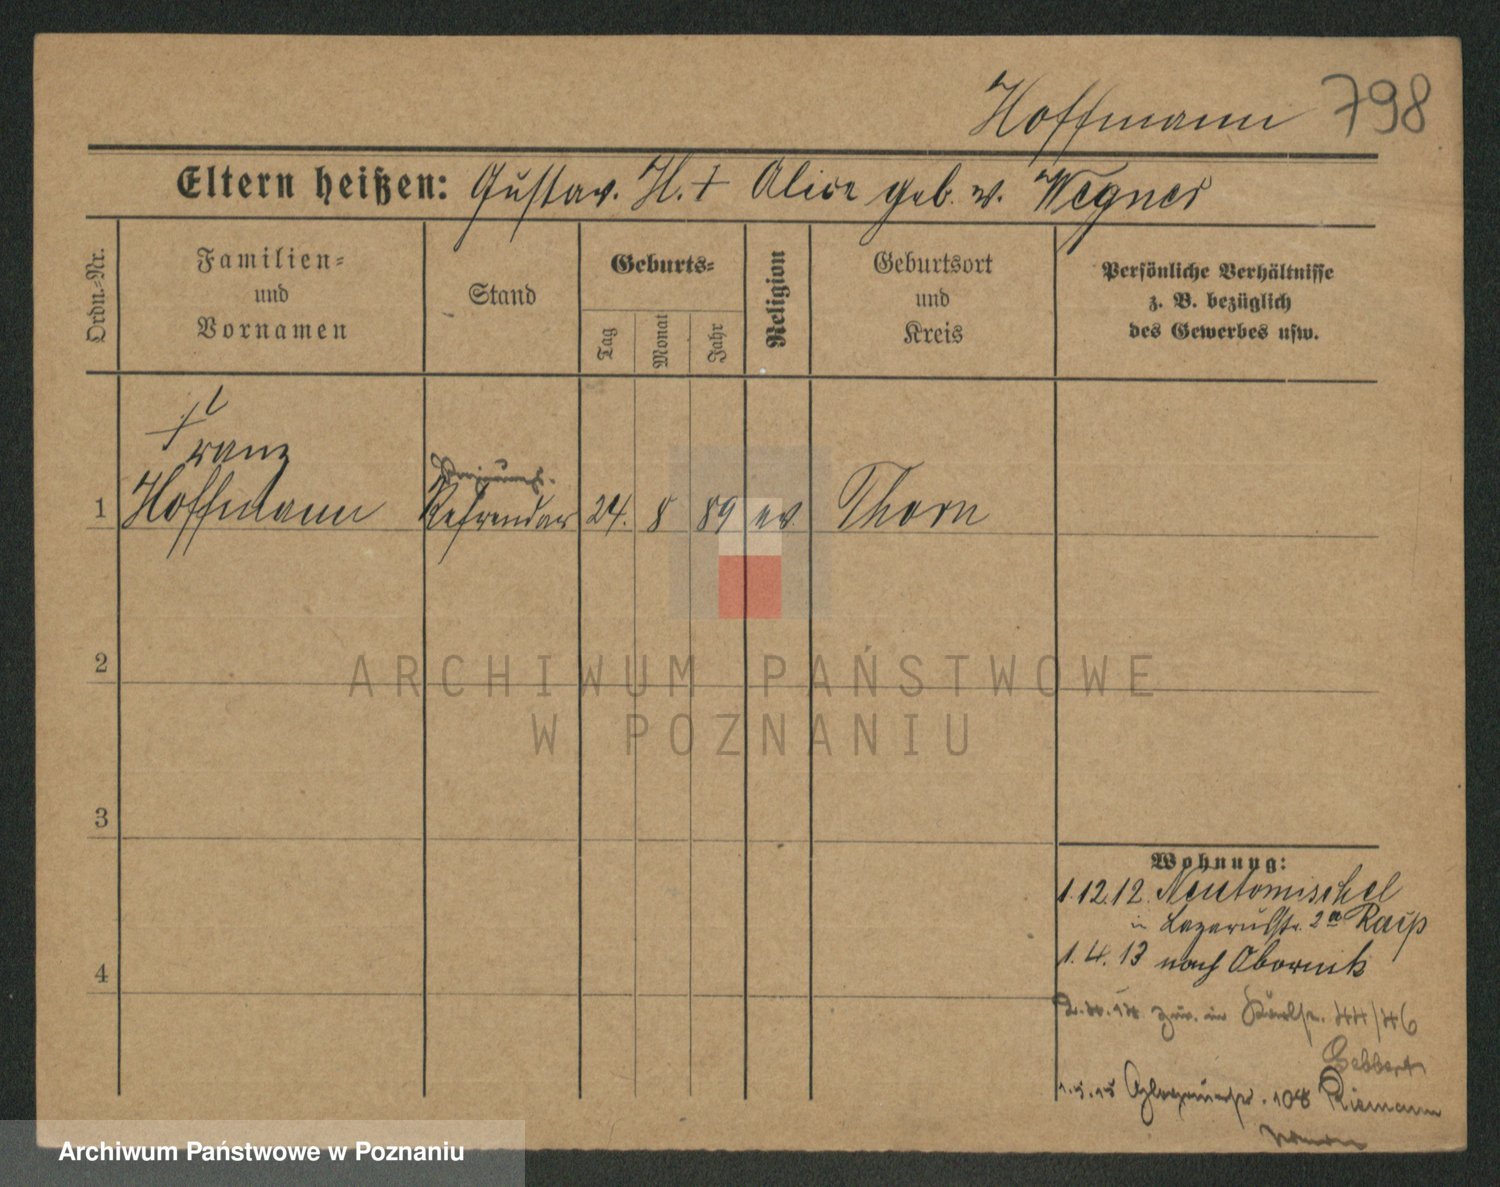 Hoffmann 798
Eltern heißen: Gustav. H. + Alice geb. v. Wegner
Ordn.-Nr.
Familien-
und
Vornamen
Stand
Geburts-
Tag
Monat
Jahr
Religion
Geburtsort
und
Kreis
Persönliche Verhältnisse
z. B. bezüglich
des Gewerbes usw.
Franz
1 Hoffmann 24. 8 89 ev Thorn
2
ARCHIWUM PAŃSTWOWE
W POZNANIU
3
Wohnung:
1.12.12. Neutomischel
in Lazarusstr. 2a
4
1.4.13 nach Obornik
zur. in 44/46
Gebbert
1.5.15 108 Riemann
Archiwum Państwowe w Poznaniu